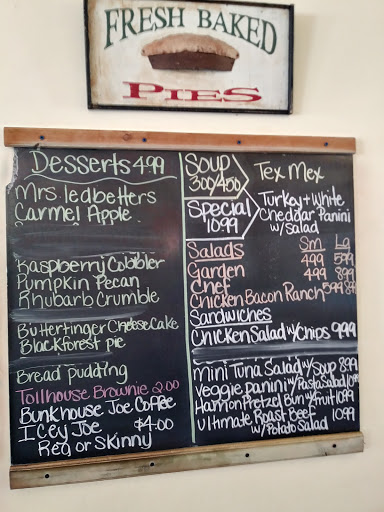 FRESH BAKED
PIES
Desserts 4.99
Mrs. ledbetters
Carmel Apple
Raspberry Cobbler
Pumpkin Pecan
Rhubarb Crumble
Butterfinger Cheese Cake
Blackforest pie
Bread pudding
Tollhouse Brownie 2.00
Bunkhouse Joe Coffee
Icey Joe $4.00
Reg or Skinny
Soup 300/450
Tex Mex
Special 1099
Turkey + White
Cheddar Panini
w/salad
Salads Sm Lg
Garden 499 599
Chef 499 899
Chicken Bacon Ranch 599 899
Sandwiches
Chicken Salad w/Chips 999
Mini Tuna Salad w/Soup 899
Veggie panini w/Pasta Salad 1099
Ham on Pretzel Bun w/fruit 1099
Ultimate Roast Beef 1099
w/Potato Salad